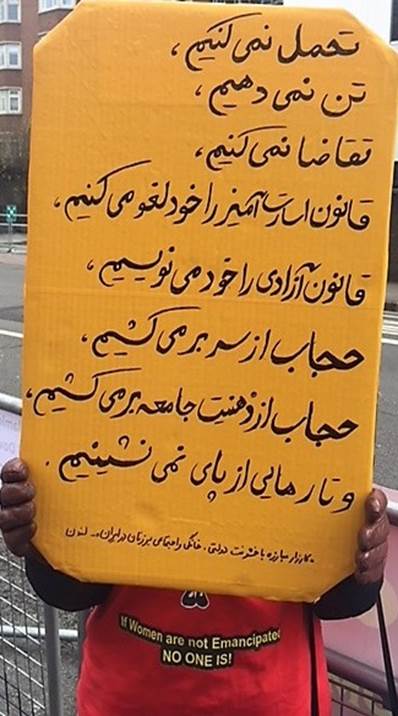 تحمل نمی‌کنیم،
تن نمی‌دهیم،
تقاضا نمی‌کنیم،
قانون اسارت‌آمیز را خود لغو می‌کنیم،
قانون آزادی را خود می‌نویسیم،
حجاب از سر بر می‌کشیم،
حجاب از ذهنیت جامعه بر می‌کشیم،
و تا رهایی از پای نمی‌نشینیم.
کارزار مبارزه با خشونت دولتی، خانگی و اجتماعی بر زنان در ایران - لندن
If Women are not Emancipated
NO ONE IS!